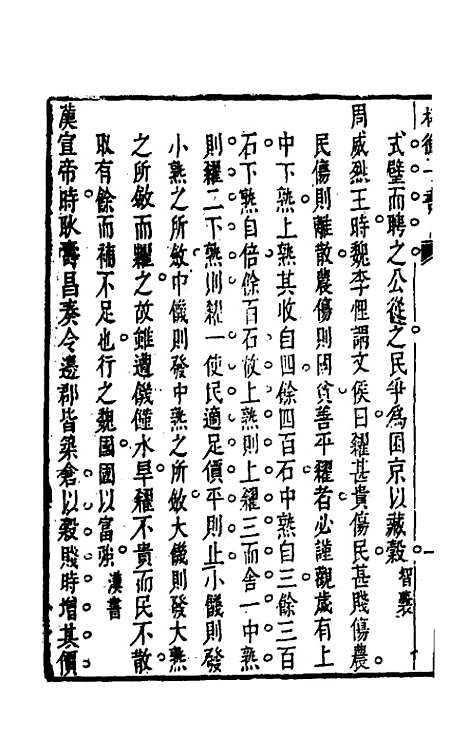 式璧而聘之公從之民爭爲囷京以藏穀 智囊
周威烈王時魏李悝謂文侯曰糴甚貴傷民甚賤傷農
民傷則離散農傷則國貧善平糴者必謹觀歲有上
中下熟上熟其收自四餘四百石中熟自三餘三百
石下熟自倍餘百石故上熟則上糴三而舍一中熟
則糴二下熟則糴一使民適足價平則止小饑則發
小熟之所斂中饑則發中熟之所斂大饑則發大熟
之所斂而糶之故雖遇饑饉水旱糴不貴而民不散
取有餘而補不足也行之魏國國以富強 漢書
漢宣帝時耿壽昌奏令邊郡皆築倉以穀賤時增其價